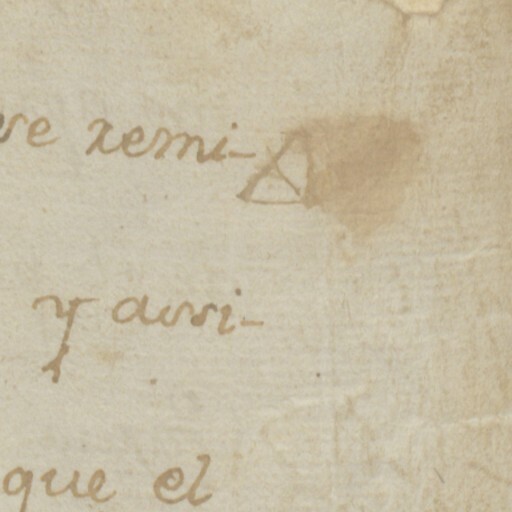 se remi-
y assi-
que el